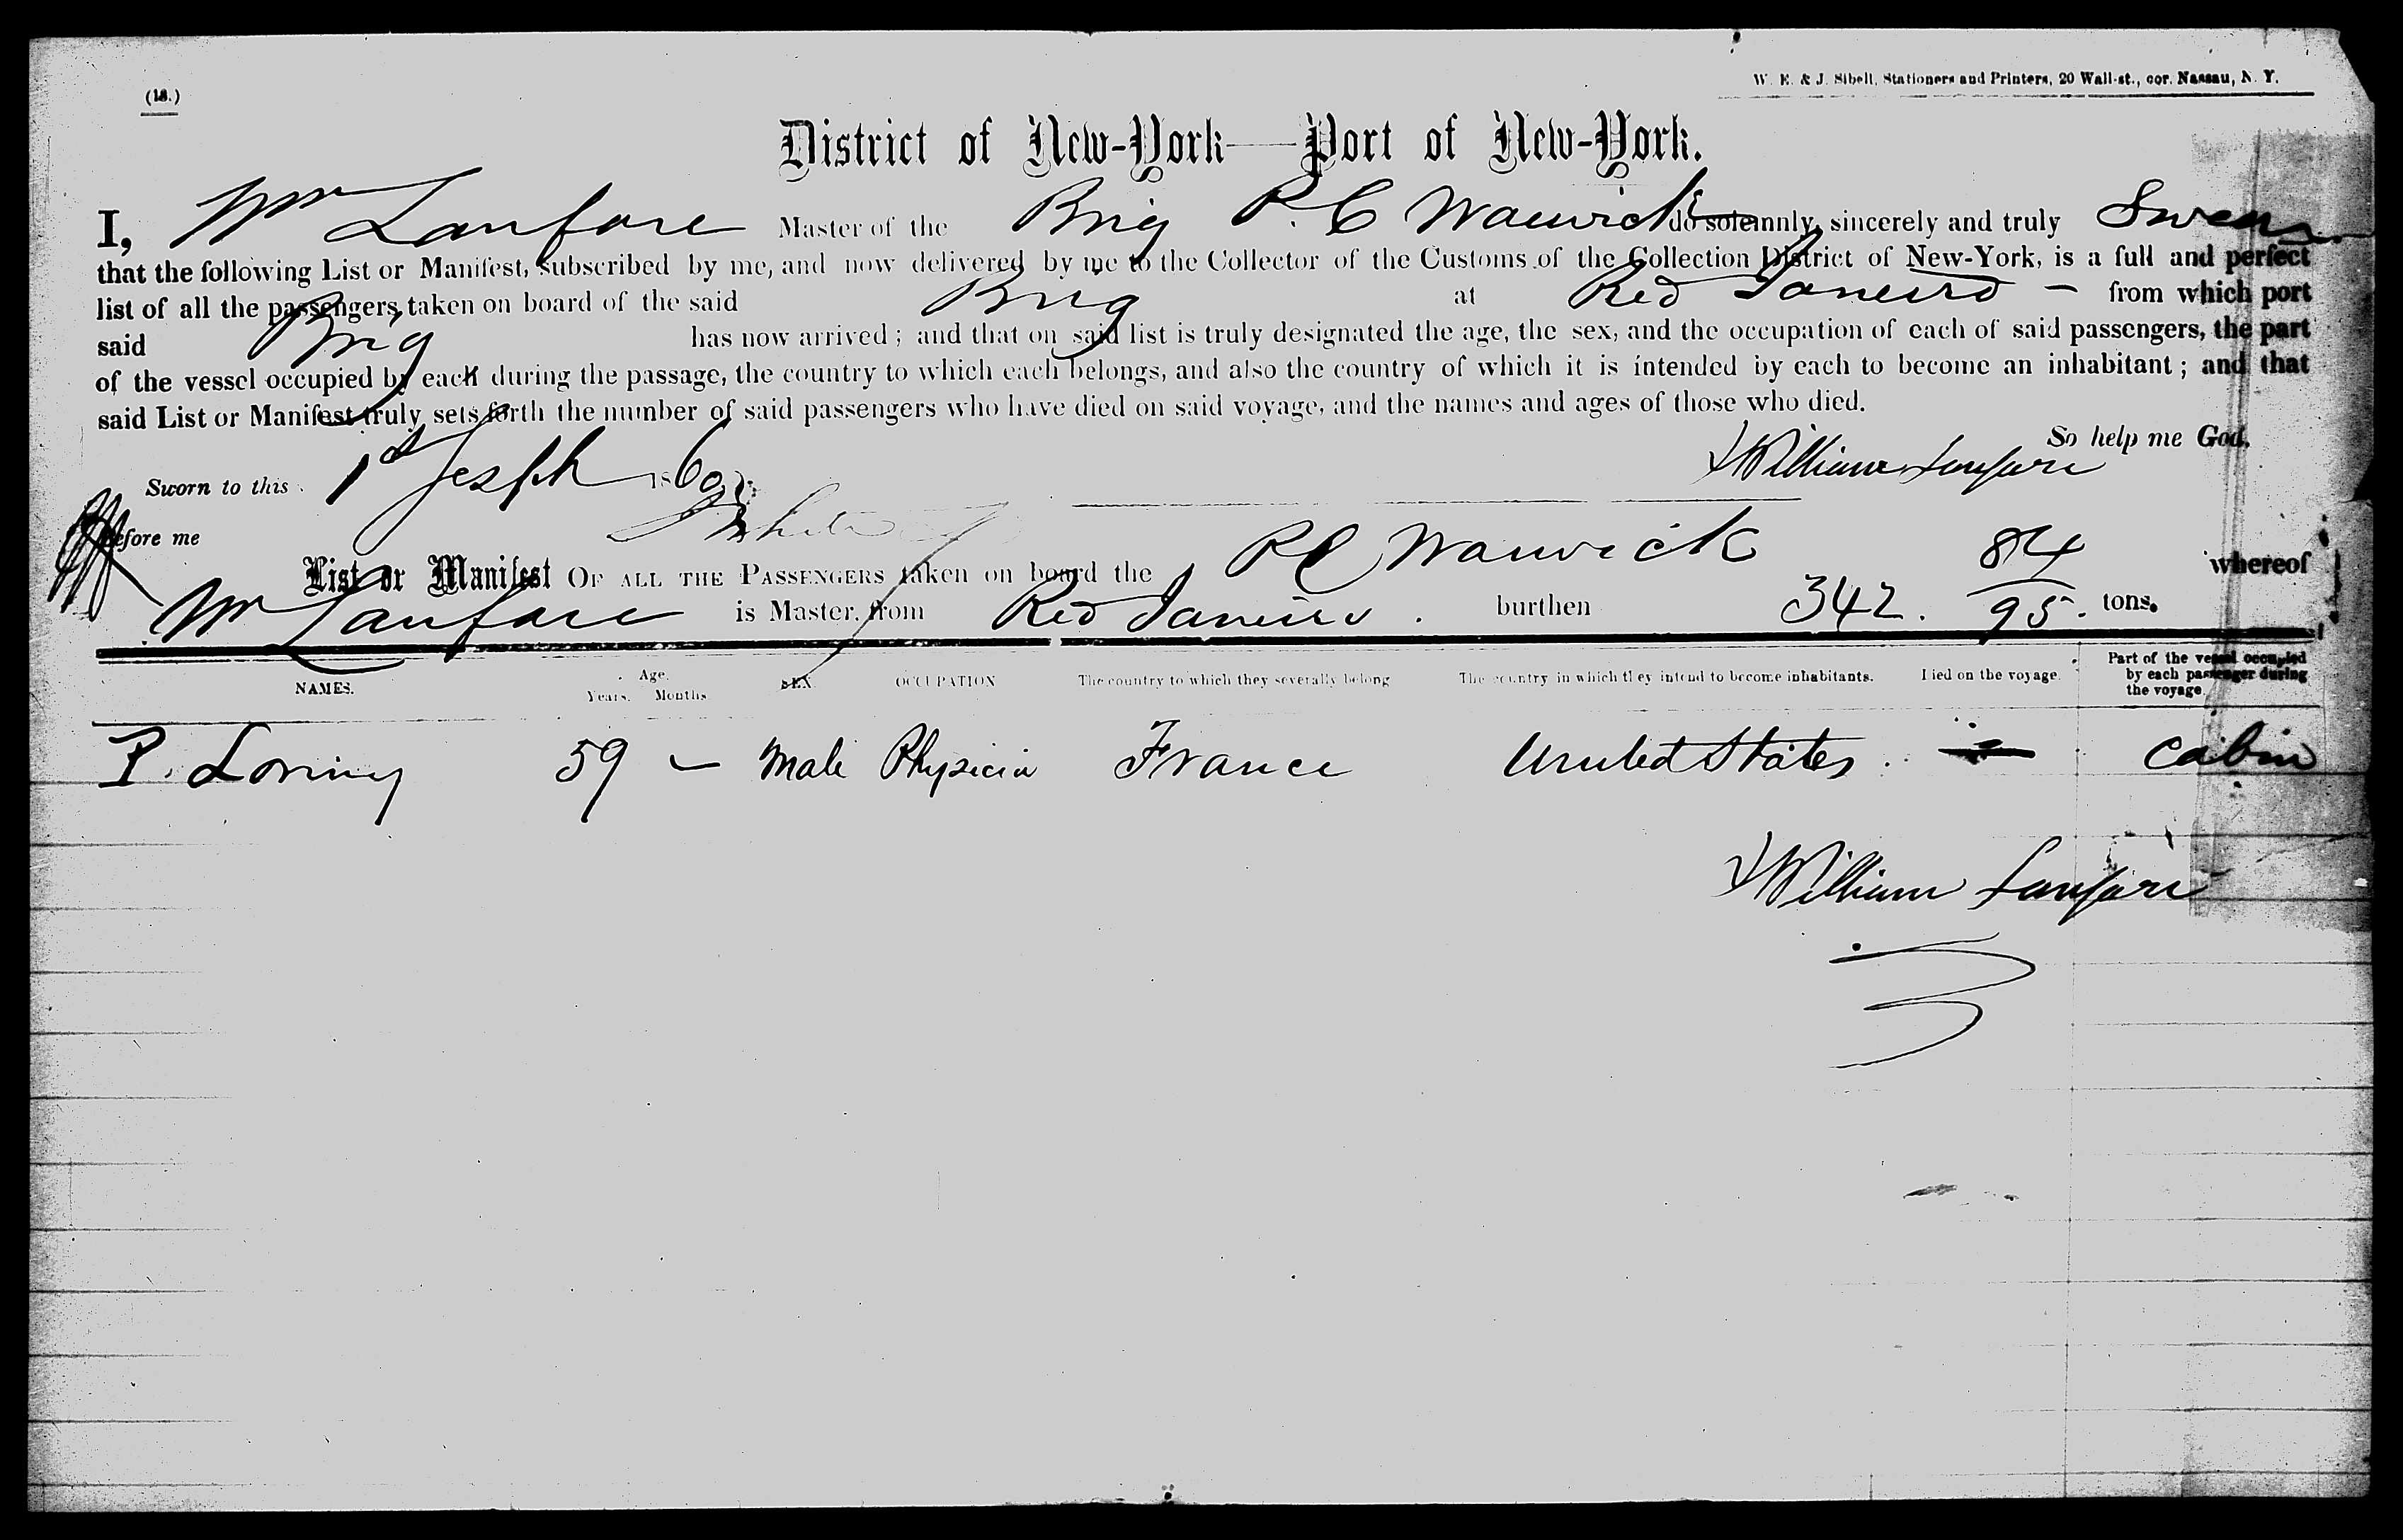 (18.)
W. E. & J. Sibell, Stationers and Printers, 20 Wall-st., cor. Nassau, N. Y.
District of New-York—Port of New-York.
I, Wm Lanfare Master of the Brig P. C Warwick do solemnly, sincerely and truly Swear
that the following List or Manifest, subscribed by me, and now delivered by me to the Collector of the Customs of the Collection District of New-York, is a full and perfect
list of all the passengers taken on board of the said Brig at Reo Janeiro — from which port
said Brig has now arrived; and that on said list is truly designated the age, the sex, and the occupation of each of said passengers, the part
of the vessel occupied by each during the passage, the country to which each belongs, and also the country of which it is intended by each to become an inhabitant; and that
said List or Manifest truly sets forth the number of said passengers who have died on said voyage, and the names and ages of those who died.
So help me God.
Sworn to this 1st 1860 William Lanfare
Before me
List or Manifest OF ALL THE PASSENGERS taken on board the P C Warwick whereof
Wm Lanfare is Master, from Reo Janeiro. burthen 342. 84/95. tons.
NAMES. Age. Years. Months SEX OCCUPATION The country to which they severally belong The country in which they intend to become inhabitants. Died on the voyage. Part of the vessel occupied by each passenger during the voyage
P. Loriny 59 — Male Physicia France United States — Cabin
William Lanfare